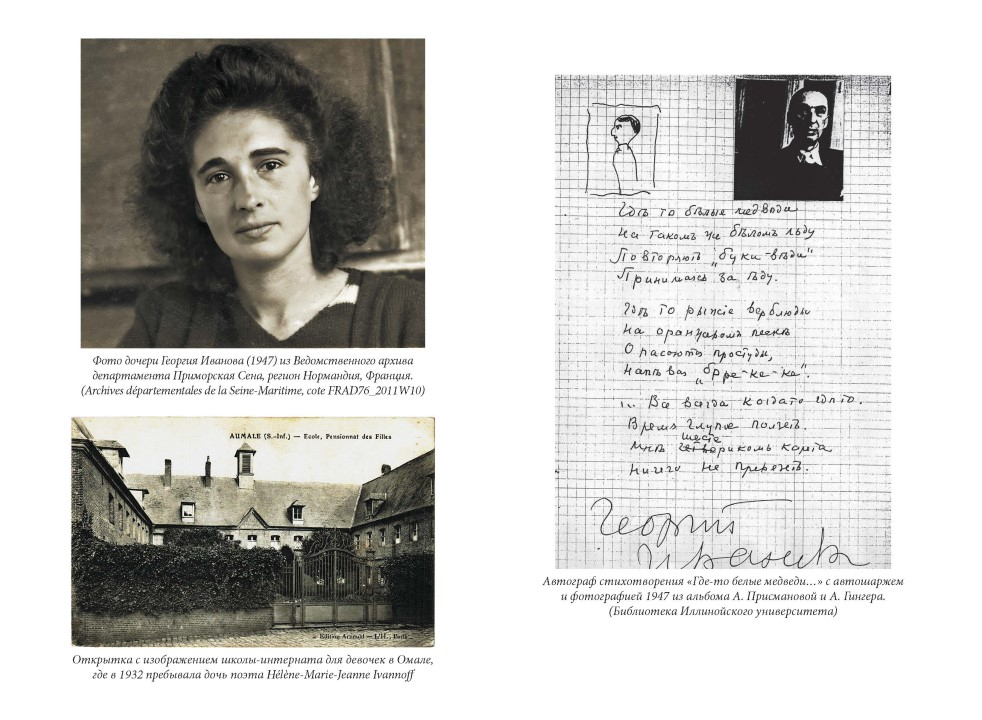 Фото дочери Георгия Иванова (1947) из Ведомственного архива
департамента Приморская Сена, регион Нормандия, Франция.
(Archives départementales de la Seine-Maritime, cote FRAD76_2011W10)
AUMALE (S.-Inf.) — Ecole, Pensionnat des Filles
Edition Aumond — L'H., Paris
Открытка с изображением школы-интерната для девочек в Омале,
где в 1932 пребывала дочь поэта Hélène-Marie-Jeanne Ivannoff
Гдѣ то бѣлые медвѣди
На такомъ же бѣломъ льду
Повторяютъ „буки-вѣди"
Принимаясь за ѣду.
Гдѣ то рыжіе верблюды
На оранжевомъ пескѣ
Опасаются простуды,
"бррe-ке-ке".
... Все всегда когдато гдѣто.
Время глупое ползетъ.
Мнѣ шесте
рикомъ карета
Ничего не
Георгій
Ивановъ
Автограф стихотворения «Где-то белые медведи…» с автошаржем
и фотографией 1947 из альбома А. Присмановой и А. Гингера.
(Библиотека Иллинойского университета)